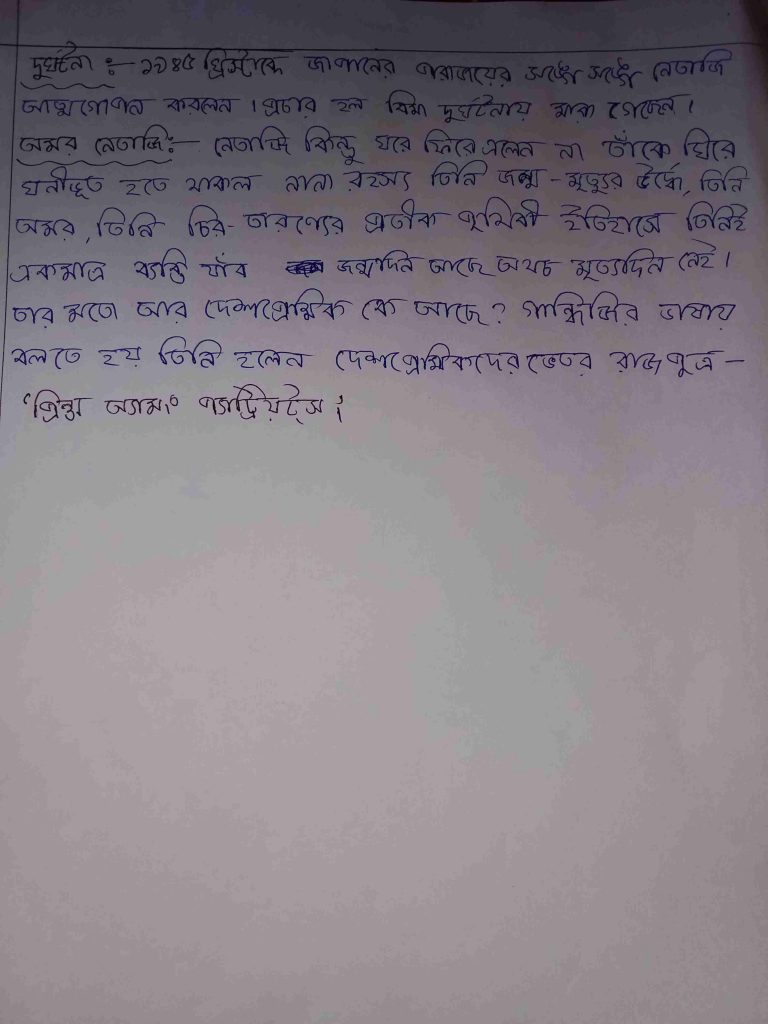 দুর্ঘটনা :- ১৯৪৫ খ্রিস্টাব্দে জাপানের পরাজয়ের সঙ্গে সঙ্গে নেতাজি
আত্মগোপন করলেন । প্রচার হল বিমা দুর্ঘটনায় মারা গেছেন ।
অমর নেতাজি:- নেতাজি কিন্তু ঘরে ফিরে এলেন না তাঁকে ঘিরে
ঘনীভূত হতে থাকল নানা রহস্য তিনি জন্ম - মৃত্যুর ঊর্দ্ধে, তিনি
অমর, তিনি চির- তারণ্যের প্রতীক পৃথিবী ইতিহাসে তিনিই
একমাত্র ব্যক্তি যাঁর জন্মদিন আছে অথচ মৃত্যদিন নেই ।
তার মতো আর দেশপ্রেমিক কে আছে ? গান্ধিজির ভাষায়
বলতে হয় তিনি হলেন দেশপ্রেমিকদের ভেতর রাজপুত্র -
'প্রিন্স অ্যামং প্যাট্রিয়ট্স ।